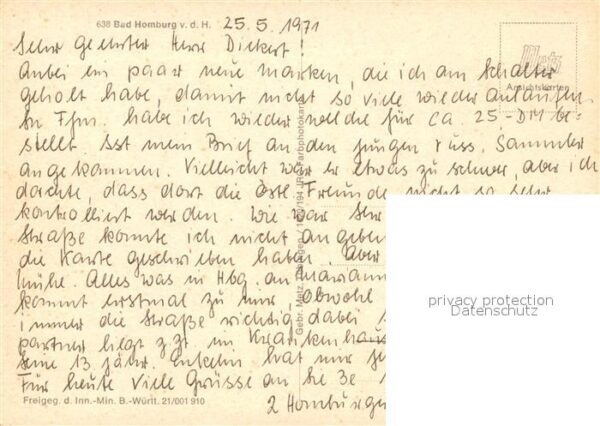 638 Bad Homburg v. d. H. 25.5.1971
Sehr geehrter Herr Dickert!
Anbei ein paar neue Marken, die ich am Schalter
geholt habe, damit nicht so viele wieder anlaufen.
In Ffm. habe ich wieder welche für ca. 25-DM be-
stellt. Ist mein Brief an den jungen russ. Sammler
angekommen. Vielleicht war er etwas zu schwer, aber ich
dachte, dass dort die östl. Freunde nicht so sehr
kontrolliert werden. Wie war
Straße konnte ich nicht angeben
die Karte geschrieben haben. Aber
Mühe. Alles was in Hbg. an
kommt erstmal zu mir, Obwohl
immer die Straße richtig dabei
partner liegt z.Zt. im Krankenhaus
seine 13 jähr. Enkelin hat mir
Für heute viele Grüsse an Sie
2 Homburger
Metz
Ansichtskarten
Gebr. Metz, Tübingen
Farbphotokarte
Freigeg. d. Inn.-Min. B.-Württ. 21/001 910
privacy protection
Datenschutz